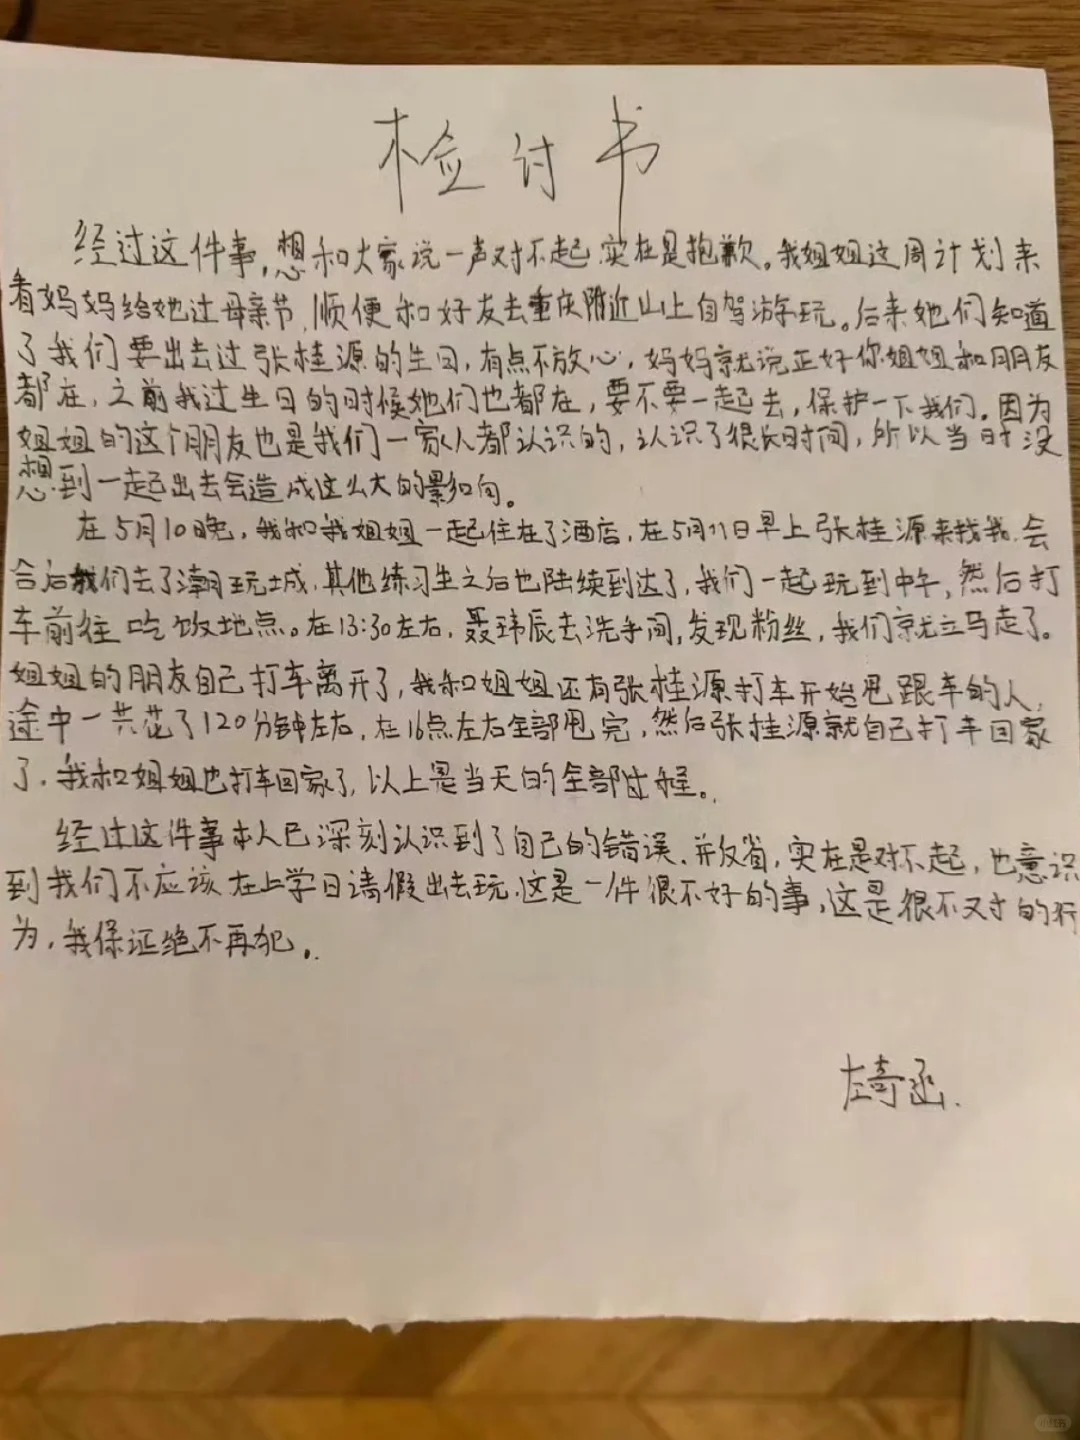 检讨书
经过这件事,想和大家说一声对不起.实在是抱歉。我姐姐这周计划来
看妈妈给她过母亲节,顺便和好友去重庆附近山上自驾游玩。后来她们知道
了我们要出去过张桂源的生日,有点不放心,妈妈就说正好你姐姐和朋友
都在,之前我过生日的时候她们也都在,要不要一起去,保护一下我们。因为
姐姐的这个朋友也是我们一家人都认识的,认识了很长时间,所以当时没
想到一起出去会造成这么大的影响。
在5月10晚,我和我姐姐一起住在了酒店,在5月11日早上张桂源来找我.会
合后我们去了潮玩城,其他练习生之后也陆续到达了,我们一起玩到中午,然后打
车前往吃饭地点。在13:30左右,聂玮辰去洗手间,发现粉丝,我们就立马走了。
姐姐的朋友自己打车离开了,我和姐姐还有张桂源打车开始甩跟车的人,
途中一共花了120分钟左右,在16点左右全部甩完,然后张桂源就自己打车回家
了.我和姐姐也打车回家了,以上是当天的全部过程。
经过这件事本人已深刻认识到了自己的错误.并反省,实在是对不起,也意识
到我们不应该在上学日请假出去玩.这是一件很不好的事,这是很不对的行
为,我保证绝不再犯。
左奇函.
小红书